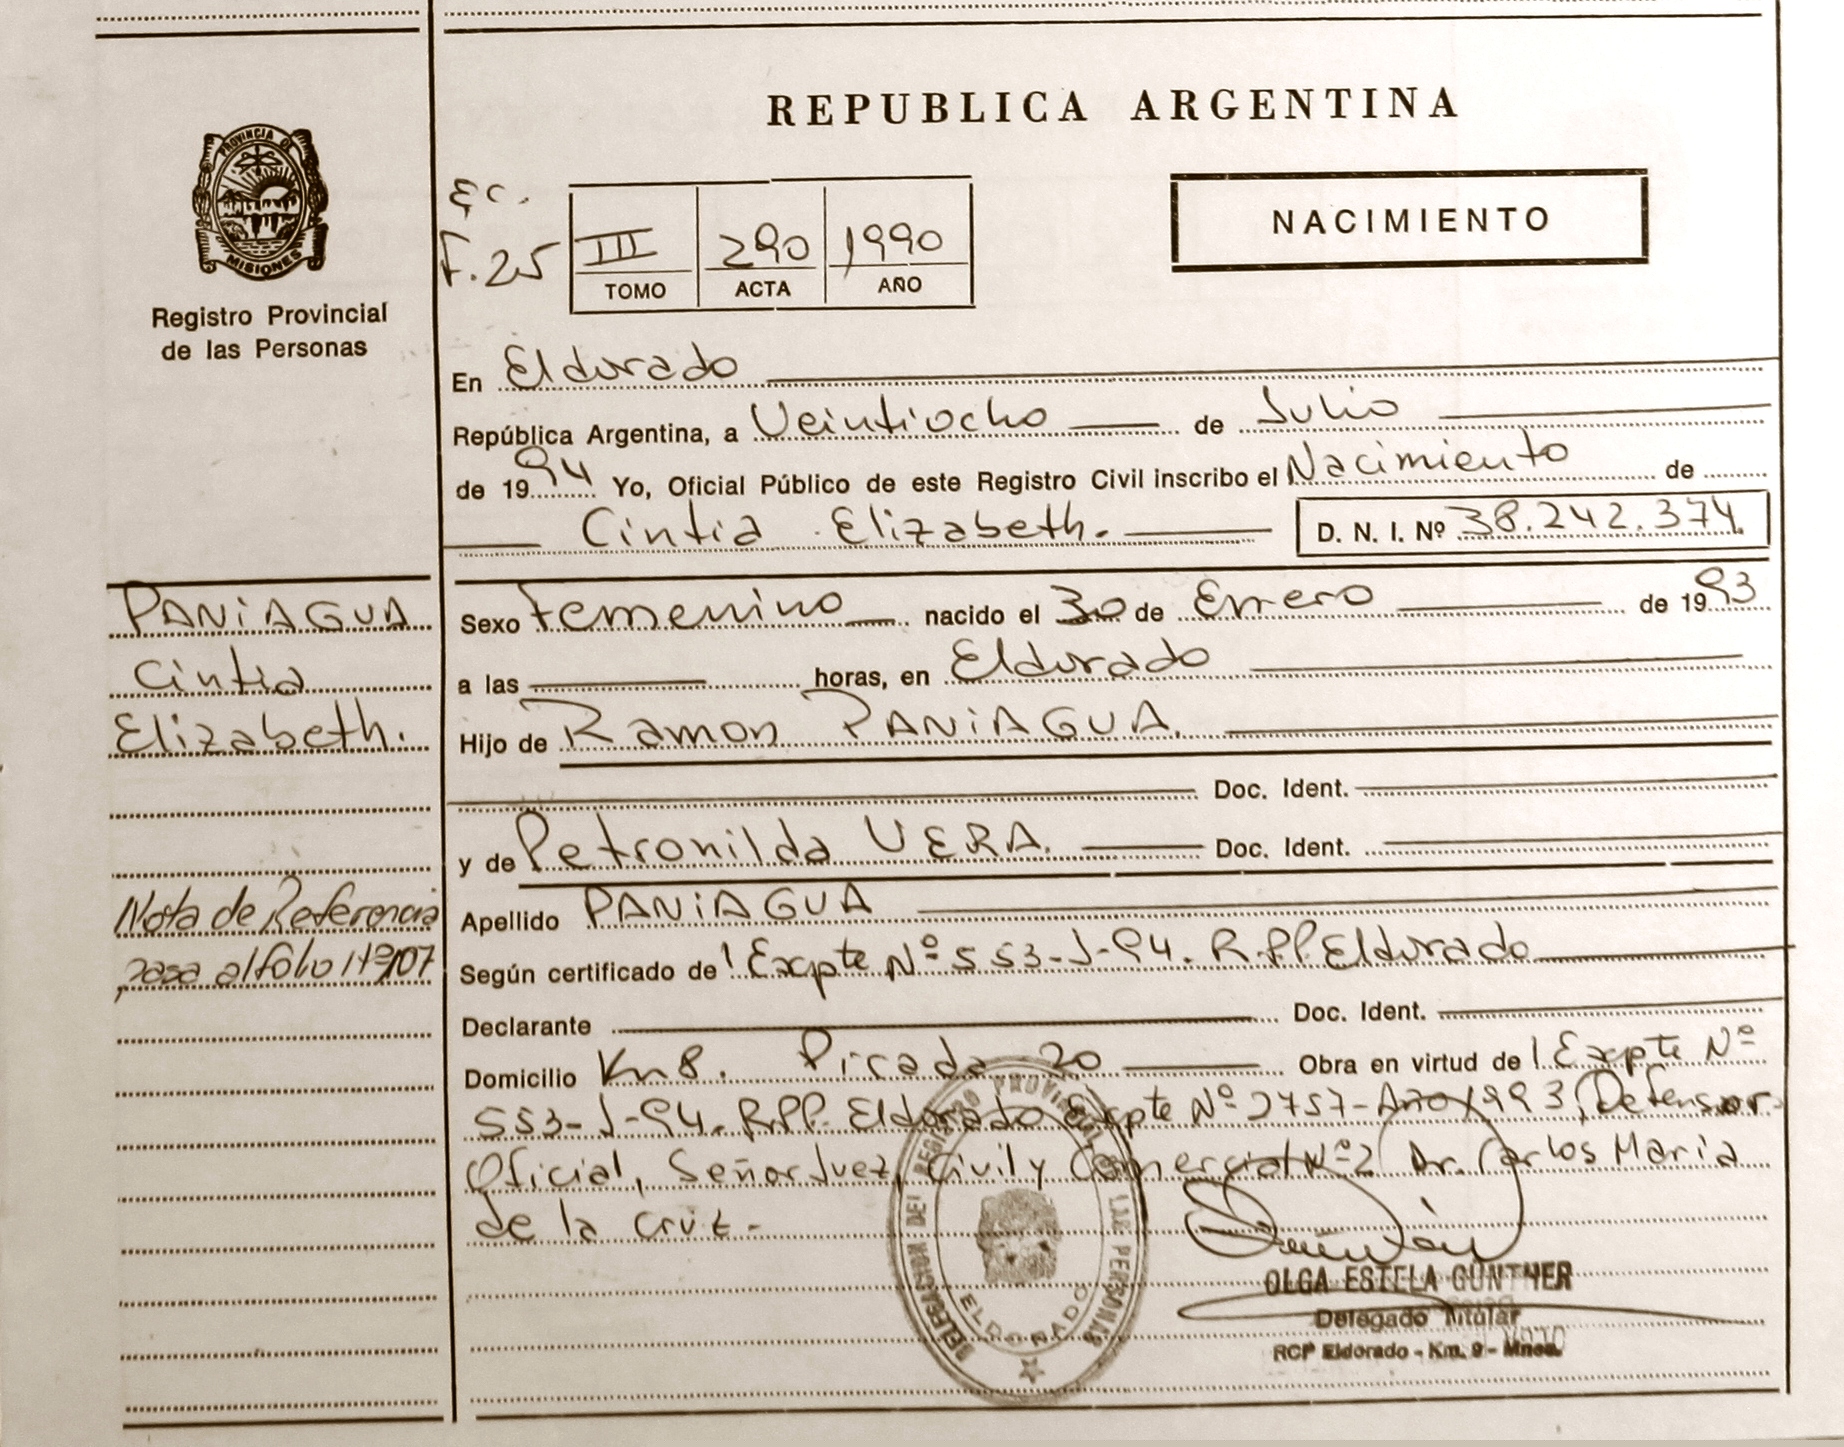 REPUBLICA ARGENTINA
PROVINCIA DE
MISIONES
Registro Provincial
de las Personas
EC.
F.25
III 290 1990
TOMO ACTA AÑO
NACIMIENTO
En Eldorado
República Argentina, a Veintiocho de Julio
de 1994 Yo, Oficial Público de este Registro Civil inscribo el Nacimiento de
Cintia Elizabeth. D. N. I. Nº 38.242.374
PANIAGUA
Cintia
Elizabeth.
Sexo Femenino nacido el 30 de Enero de 1993
a las horas, en Eldorado
Hijo de Ramon PANIAGUA.
Doc. Ident.
y de Petronilda VERA. Doc. Ident.
Nota de Referencia
pasa al folio 107
Apellido PANIAGUA
Según certificado de Expte Nº 553-J-94. R.P.P. Eldorado
Declarante Doc. Ident.
Domicilio Km 8. Picada 20 Obra en virtud de Expte Nº
553-J-94. R.P.P. Eldorado Expte Nº 2757-Año 1993, Defensor
Oficial, Señor Juez, Civil y Comercial Nº 2 Dr. Carlos María
de la Cruz-
DELEGACION DEL REGISTRO PROVINCIAL DE LAS PERSONAS
ELDORADO
OLGA ESTELA GUNTHER
Delegado Titular
RCP Eldorado - Km. 9 - Mnes.